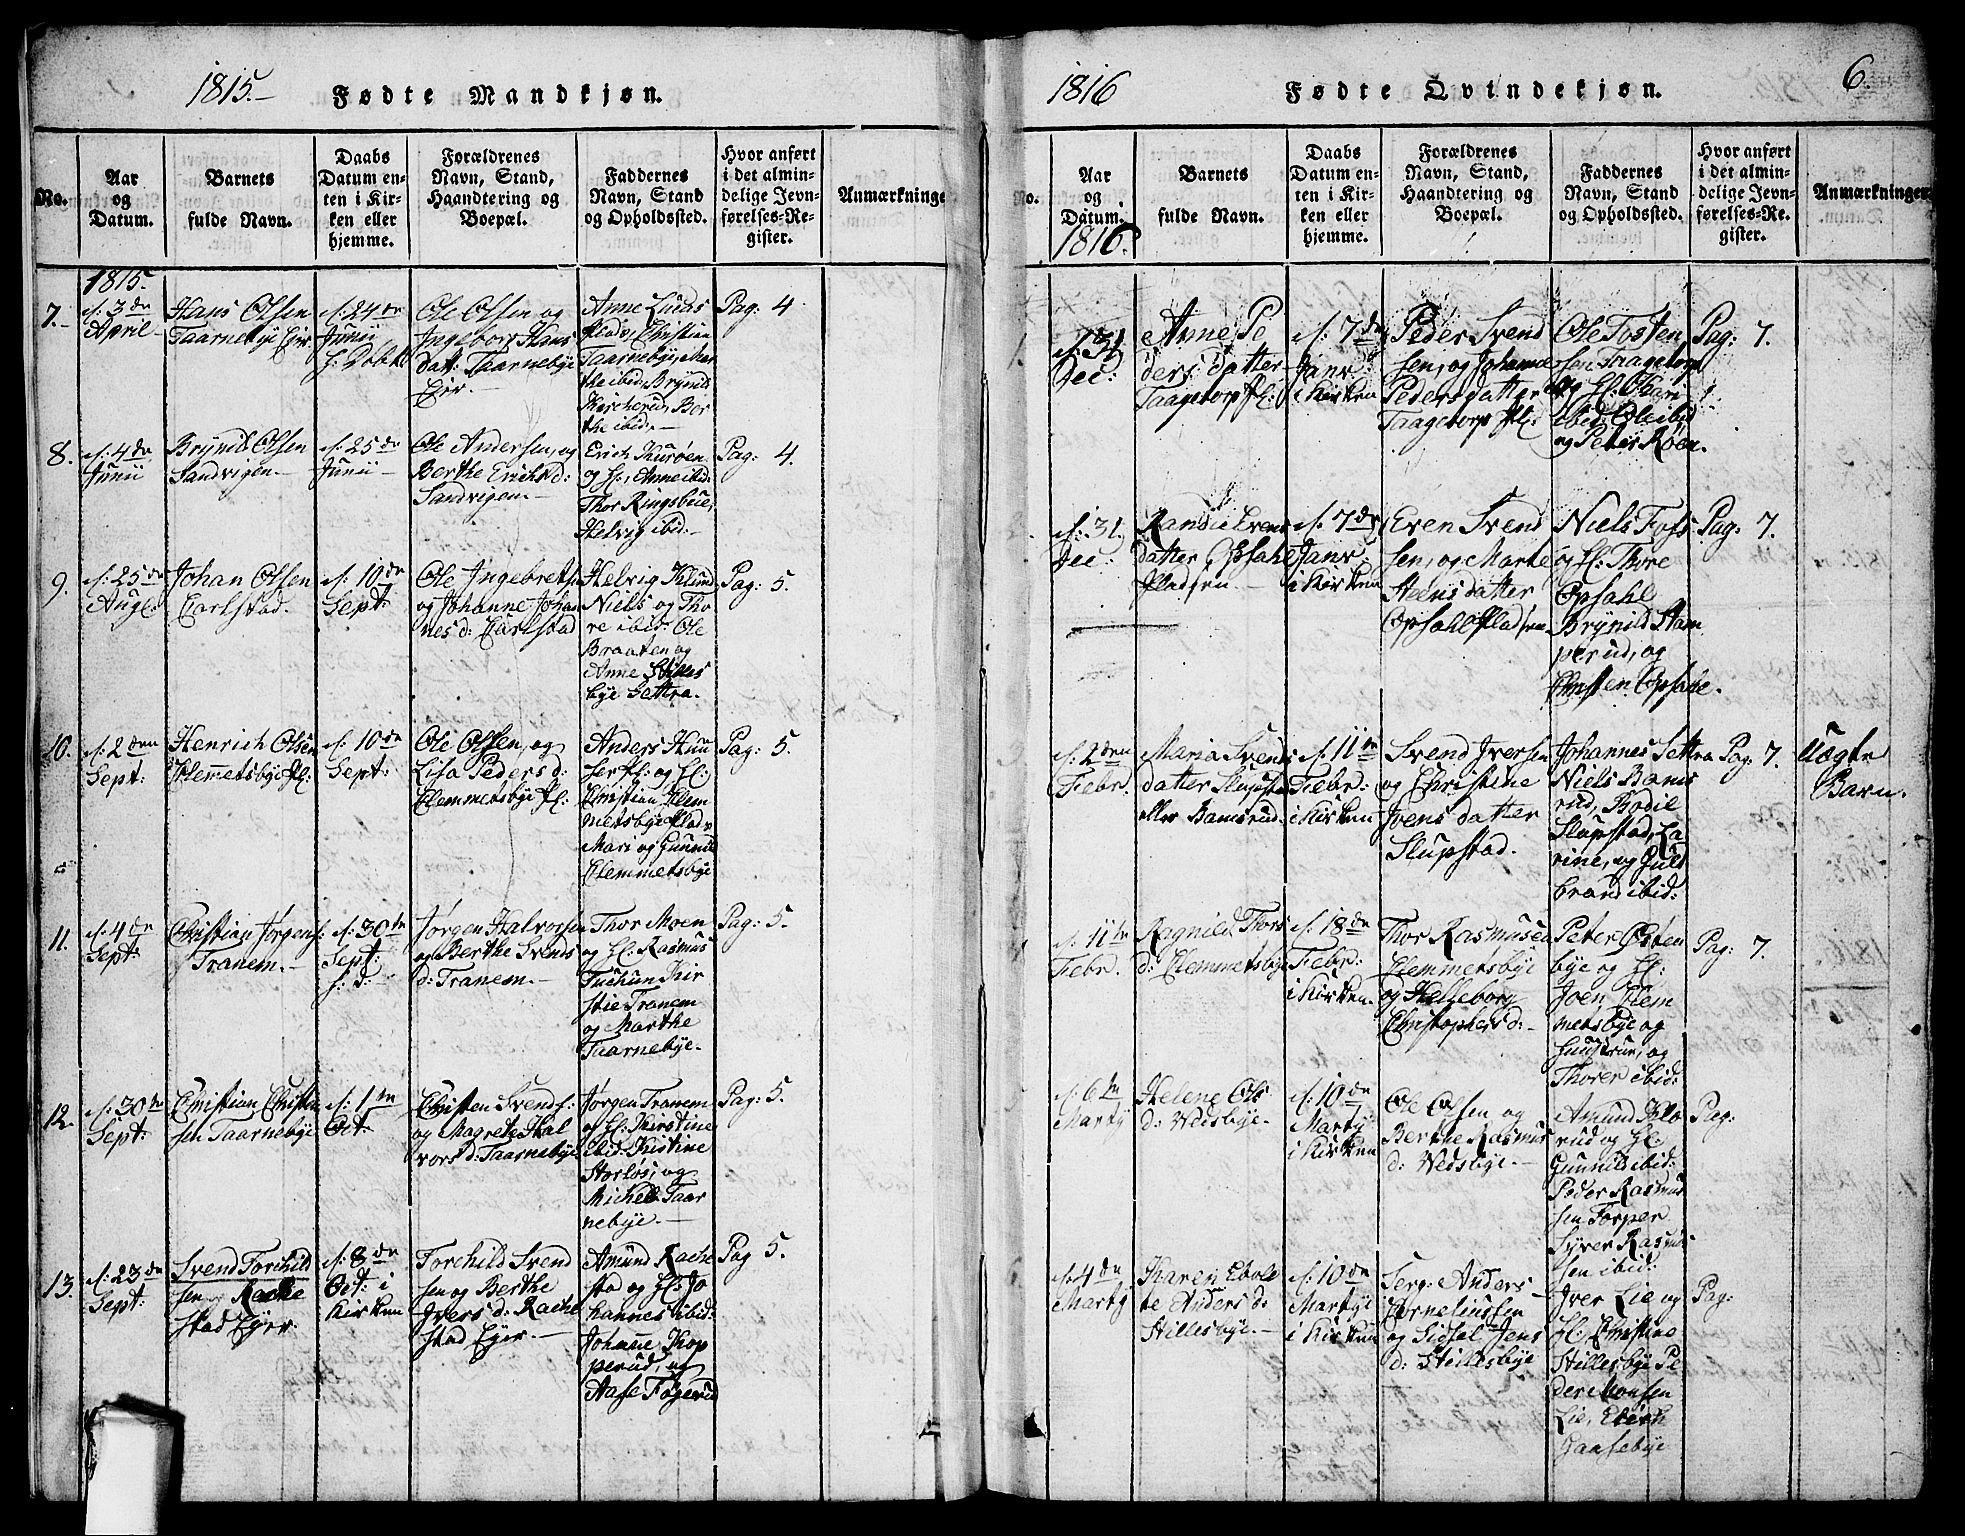 1815.-
Fødte Mandkjøn.
No.
Aar
og
Datum.
Barnets
fulde Navn.
Daabs
Datum en-
ten i Kir-
ken eller
hjemme.
Forældrenes
Navn, Stand,
Haandtering og
Boepæl.
Faddernes
Navn, Stand
og Opholdssted.
Hvor anført
i det almin-
delige Jevn-
førelses-Re-
gister.
Anmærkninge
1815.
7.-
d: 3de
April
Hans Olsen
Taarnebye Eier
d: 24de
Junii
Ole Olsen og
Ingeborg Hans
dat: Taarnebye
Eier.-
Anne Lucas
Christian
Taarnebye, Mar
the ibid, Brynild
Kircherud, Ber
the ibid.-
Pag: 4
8.
d: 4de
Junii
Brynild Olsen
Sandvigen-
d: 25de
Junii
Ole Andersen, og
Berthe Erichsd:
Sandvigen.-
Erich Kurøen
og H:, Anne ibid:
Thor Ringsbye,
Helvig ibid:-
Pag: 4.
9.
d: 25de
Aug:
Johan Olsen
Carlstad.
d: 10de
Sept:
Ole Ingebretsen
og Johanne Johan
nesd: Carlstad
Helvig Klund
Niels og Tho
re ibid: Ole
Braaten og
Anne Stilles
bye Settra.
Pag: 5.
10.
d: 2den
Sept:
Henrich Olsen
Clemmetsbye Pl:
d: 10de
Sept:
Ole Olsen, og
Lisa Peders d:
Clemmetsbye Pl:
Anders
og H:
Christian Clem
metsbye
Mari og Gunnild
Clemmetsbye
Pag: 5.
11.
d: 4de
Sept:
Christian Jørgens
Tranem.-
d: 30te
Sept:
Jørgen Halvorsen
og Berthe Svends
d: Tranem.-
Thor Moen
og H: Rasmus
Tuchun Kir
stie Tranem
og Marthe
Taarnebye.
Pag: 5.
12.
d: 30te
Sept:
Christian Christen
sen Taarnebye
d: 1te
Oct:
Christen Svends:
og Magrete Hal
vors d: Taarnebye
Jørgen Tranem
og H: Kirstine
ibid: Kistine
Storløs, og
Michel Taar
nebye.-
Pag: 5.
13.
d: 23de
Sept:
Svend Torchild
sen Racke
stad Eyer.
d: 8de
Oct: i
Kirken
Torchild Svend
sen og Berthe
Ivers d: Racke
stad Eyer.-
Amund Racke
stad og H: Jo
hannes ibid:
Johanne Kop
perud, og
Aase Fogerud
Pag 5.
1816
Fødte Qvindekjøn.
6.
No.
Aar
og
Datum.
1816.
Barnets
fulde Navn.
Daabs
Datum en-
ten i Kir-
ken eller
hjemme.
Forældrenes
Navn, Stand,
Haandtering og
Boepæl.
Faddernes
Navn, Stand
og Opholdssted.
Hvor anført
i det almin-
delige Jevn-
førelses-Re-
gister.
Anmærkninger
1.
d: 31
Dec:
Anne Pe
ders Datter
Taagetorp Pl:
d: 7de
Janr
i Kirken
Peder Svend
sen, og Johanne
Pedersdatter
Taagetorp Pl:
Ole Tosten
sen Taagetorp
og H: Kari
ibid: Ole ibid:
og Peter Røen.
Pag: 7.
2.
d: 31.
Dec:
Randie Evens
datter Opsahl
Pladsen
d: 7de
Janr
i Kirken
Even Svend
sen, og Marte
Steensdatter
Opsahl Pladsen
Niels
og H: Thore
Opsahl
Brynild Kam
perud, og
Christen Opsahl.
Pag: 7.
d: 2den
Febr.
Maria Svends
datter Slupstad
eller Bamsrud.
d: 11te
Febr:
i Kirken
Svend Iversen
og Christine
Joens datter
Slupstad.
Johannes Settra
Niels Bams
rud, Bodil
Slupstad, Ca
rine, og Guld
brand ibid:
Pag: 7.
Uægte
Barn.
d: 11te
Febr.
Ragnild Thors
d: Clemmetsbye
d: 18de
Febr:
i Kirken
Thor Rasmusen
Clemmetsbye
og Helleborg
Christophers d:
Peter Østen
bye og H:
Joen Clem
metsbye og
Guldbrun, og
Thorer ibid:
Pag: 7.
d: 6te
Marty
Helene Ols
d: Vedsbye.-
d: 10de
Marty
i Kirken
Ole Olsen og
Berthe Rasmus
d: Vedsbye.-
Amund Klo
rud og H:
Gunnild ibid:
Peder Rasmus
sen Torper
Syver Rasmus
sen ibid:
Pag:
d: 4de
Marty
Karen Ebole
te Anders d:
Stillesbye.-
d: 10de
Martye
i Kirken
Serg: Anders
Corneliussen
og Sidsel Jens
d: Stillesbye
Iver Lie og
H:, Christine
Stillesbye Pe
der Monsen
Lie, Erich
Gaasebye
Pag: